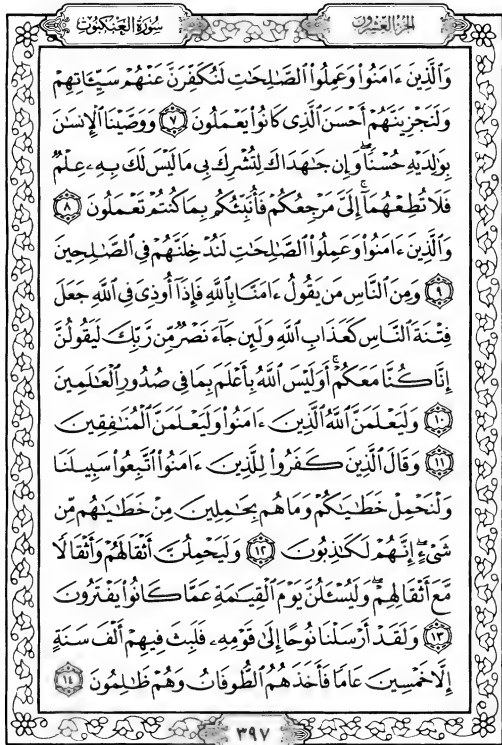 سُورَةُ الْعَنْكَبُوتِ الجُزْءُ العِشْرُونَ
وَالَّذِينَ ءَامَنُوا۟ وَعَمِلُوا۟ الصَّـٰلِحَـٰتِ لَنُكَفِّرَنَّ عَنْهُمْ سَيِّـَٔاتِهِمْ
وَلَنَجْزِيَنَّهُمْ أَحْسَنَ الَّذِى كَانُوا۟ يَعْمَلُونَ ٧ وَوَصَّيْنَا الْإِنسَـٰنَ
بِوَٰلِدَيْهِ حُسْنًا ۖ وَإِن جَـٰهَدَاكَ لِتُشْرِكَ بِى مَا لَيْسَ لَكَ بِهِۦ عِلْمٌ
فَلَا تُطِعْهُمَآ ۚ إِلَىَّ مَرْجِعُكُمْ فَأُنَبِّئُكُم بِمَا كُنتُمْ تَعْمَلُونَ ٨
وَالَّذِينَ ءَامَنُوا۟ وَعَمِلُوا۟ الصَّـٰلِحَـٰتِ لَنُدْخِلَنَّهُمْ فِى الصَّـٰلِحِينَ
٩ وَمِنَ النَّاسِ مَن يَقُولُ ءَامَنَّا بِاللَّهِ فَإِذَآ أُوذِىَ فِى اللَّهِ جَعَلَ
فِتْنَةَ النَّاسِ كَعَذَابِ اللَّهِ وَلَئِن جَآءَ نَصْرٌ مِّن رَّبِّكَ لَيَقُولُنَّ
إِنَّا كُنَّا مَعَكُمْ ۚ أَوَلَيْسَ اللَّهُ بِأَعْلَمَ بِمَا فِى صُدُورِ الْعَـٰلَمِينَ
١٠ وَلَيَعْلَمَنَّ اللَّهُ الَّذِينَ ءَامَنُوا۟ وَلَيَعْلَمَنَّ الْمُنَـٰفِقِينَ
١١ وَقَالَ الَّذِينَ كَفَرُوا۟ لِلَّذِينَ ءَامَنُوا۟ اتَّبِعُوا۟ سَبِيلَنَا
وَلْنَحْمِلْ خَطَـٰيَـٰكُمْ وَمَا هُم بِحَـٰمِلِينَ مِنْ خَطَـٰيَـٰهُم مِّن
شَىْءٍ ۖ إِنَّهُمْ لَكَـٰذِبُونَ ١٢ وَلَيَحْمِلُنَّ أَثْقَالَهُمْ وَأَثْقَالًا
مَّعَ أَثْقَالِهِمْ ۖ وَلَيُسْـَٔلُنَّ يَوْمَ الْقِيَـٰمَةِ عَمَّا كَانُوا۟ يَفْتَرُونَ
١٣ وَلَقَدْ أَرْسَلْنَا نُوحًا إِلَىٰ قَوْمِهِۦ فَلَبِثَ فِيهِمْ أَلْفَ سَنَةٍ
إِلَّا خَمْسِينَ عَامًا فَأَخَذَهُمُ الطُّوفَانُ وَهُمْ ظَـٰلِمُونَ ١٤
٣٩٧